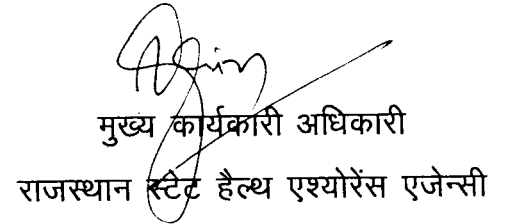 मुख्य कार्यकारी अधिकारी
राजस्थान स्टेट हैल्थ एश्योरेंस एजेन्सी